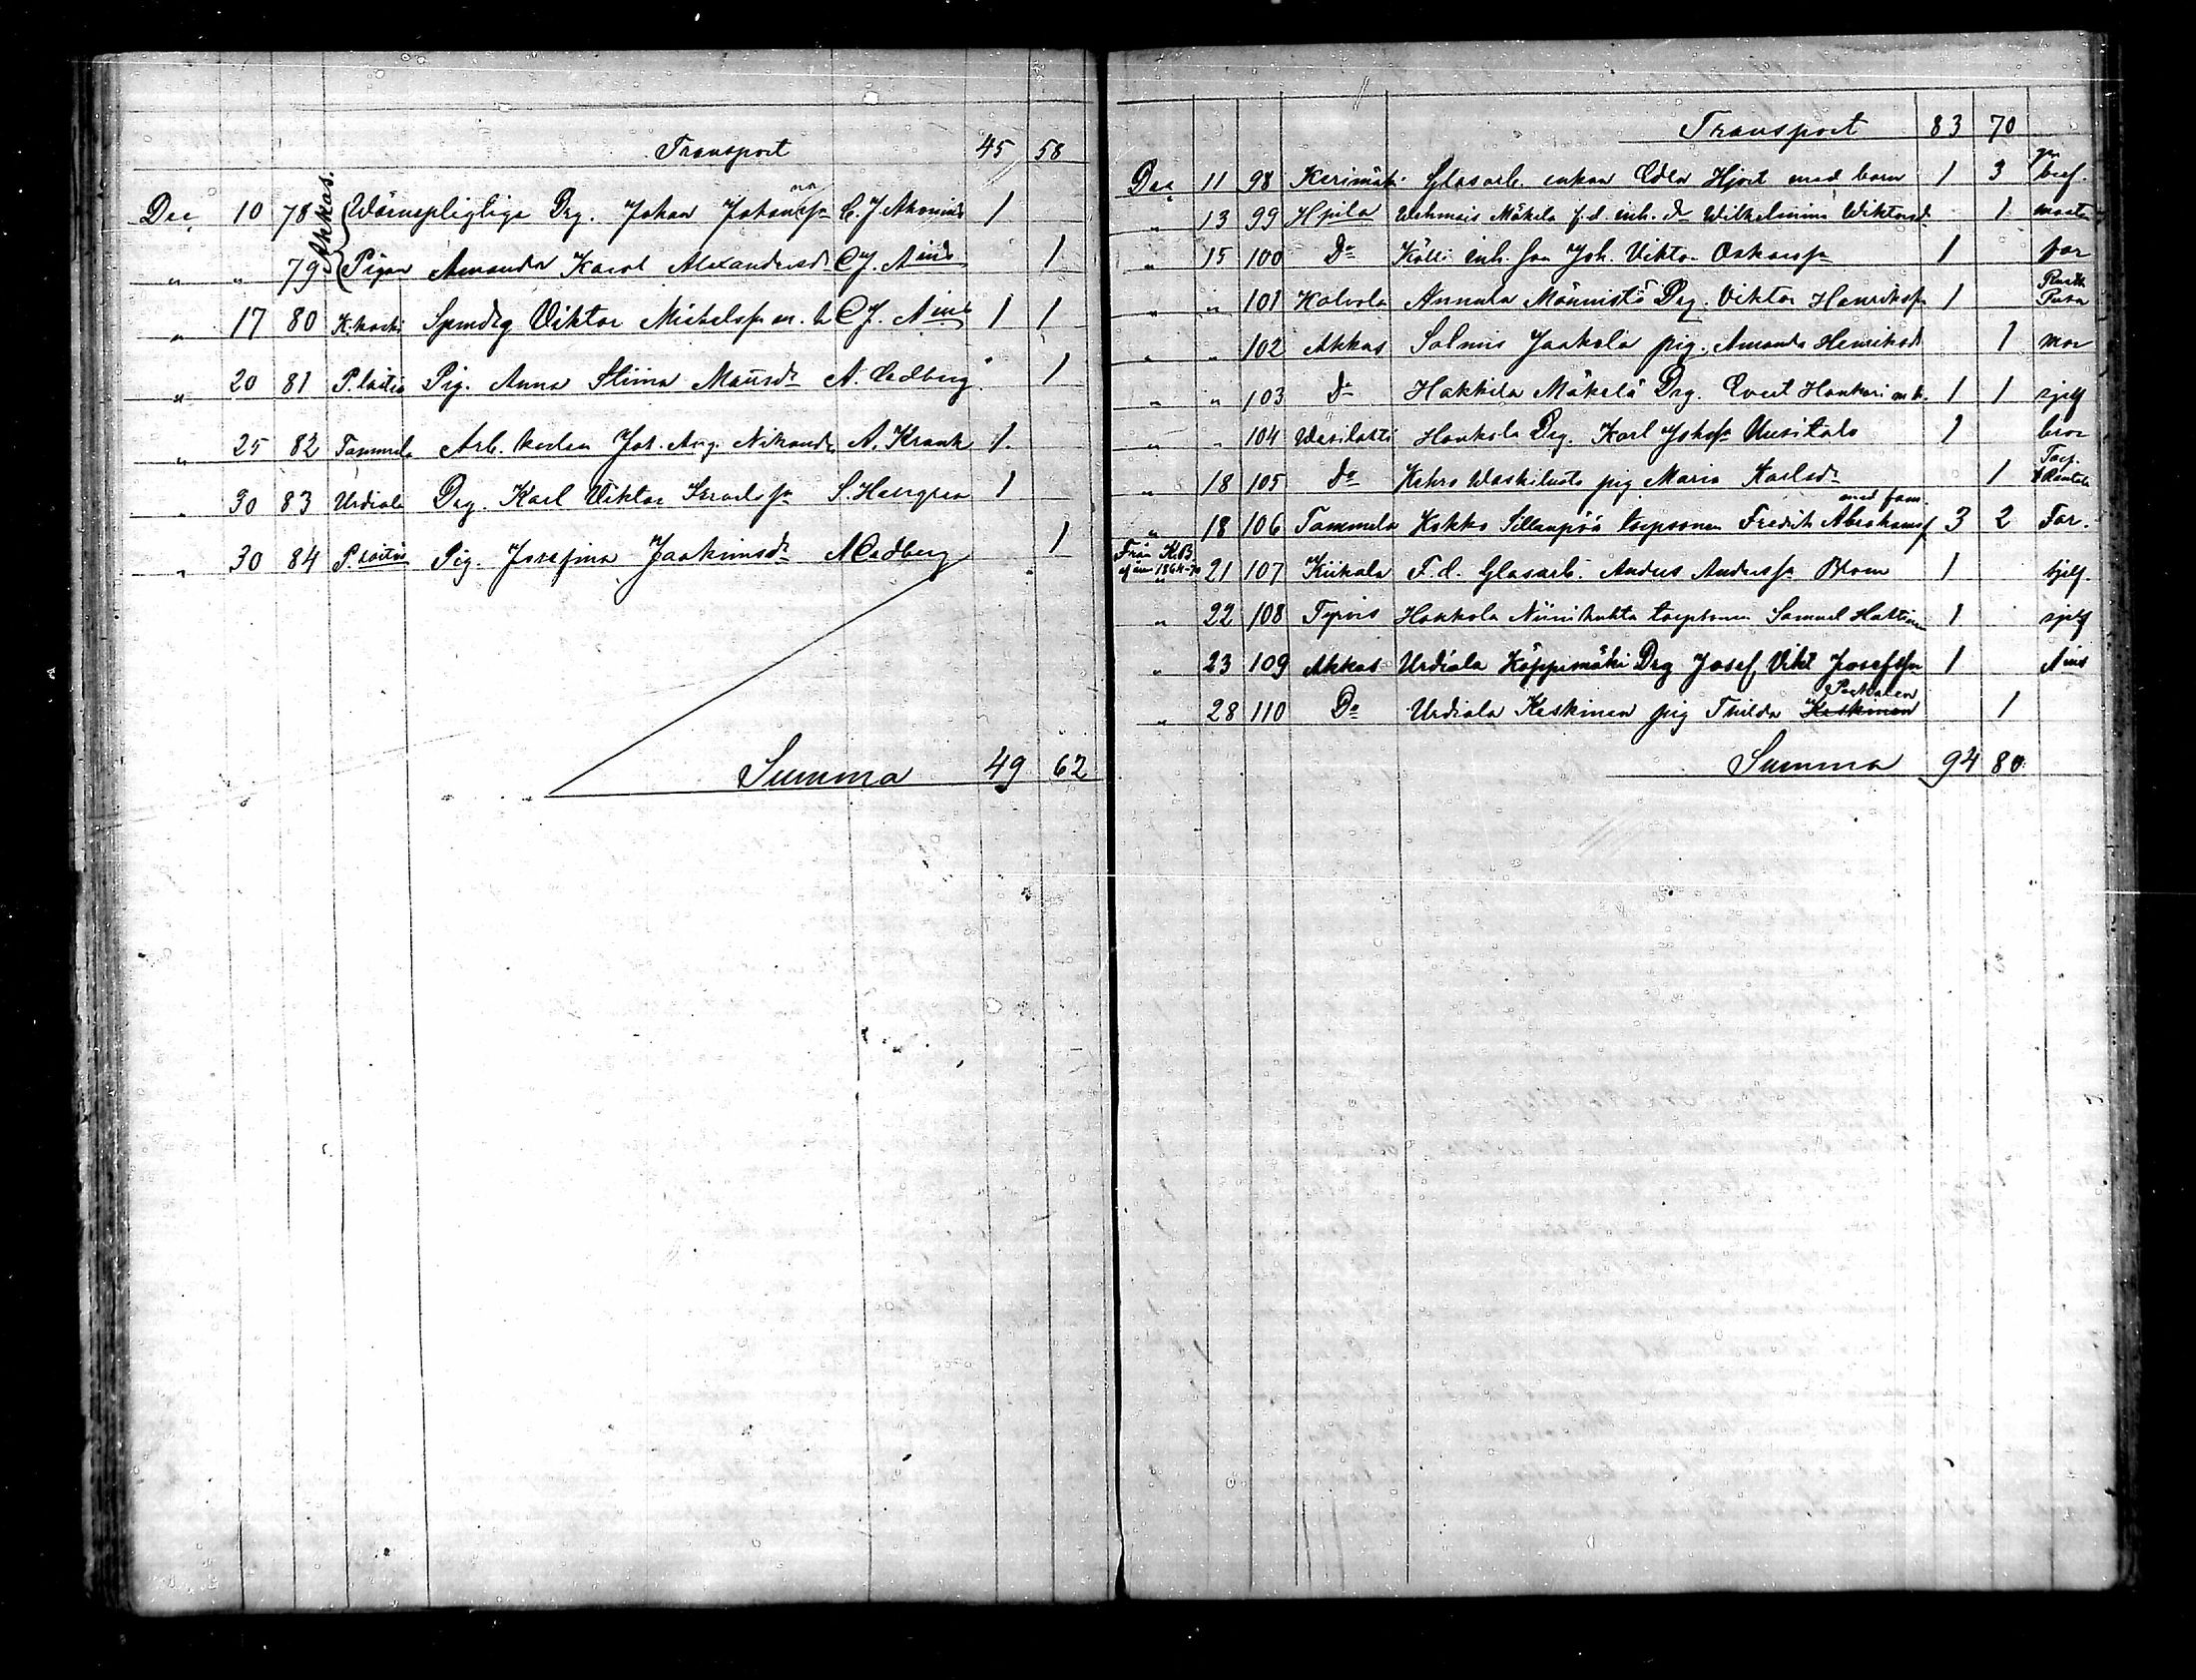 Transport 45 58
Dec 10 78 Akkas. Wärnepligtige Drg. Johan Johansson C. J. 1
" " 79 Pigan Amanda Karol. Alexandersdr C. J. A 1
" 17 80 K.koski Spmdrg Viktor Michelsson m. h C. J. A 1 1
" 20 81 P. loitis Pig. Anna Stiina Mattsdr A. Cedberg 1
" 25 82 Tammela Arb. karlen Joh. Aug. Nikander A. Krank 1.
" 30 83 Urdiala Drg. Karl Viktor S. 1
" 30 84 P. loitis Pig. Josefina Jaakimsdr A Cedberg 1
Summa 49 62
Transport 83 70
Dec 11 98 Kerimäki Glasarb. enkan Edla Hjort med barn 1 3
" 13 99 Hjila Wehmais Mäkelä f.d. inh. dr Wilhelmina Wiktorsd. 1
" 15 100 Do Kölli inh. son Joh. Viktor Oskarsson 1 far
" " 101 Kalvola Annula Männistö Drg. Viktor Henriksson 1
" " 102 Akkas Salmis Jaakola pig. Amanda Henriksdr 1 mor
" " 103 Do Hakkila Mäkelä Drg. Evert Honkari m h. 1 1 sjelf
" " 104 Wesilaks Honkola Drg. Karl Johsson Uusitalo 1 bror
Torp.
" 18 105 Do Kehro Waskiluoto pig Maria Karlsdr 1 Rantala
med fam.
" 18 106 Tammela Kokko Sillanpää torpsonen Fredrik Abrahamsson 3 2 Far.
Från K.B
1864-70
" 21 107 Kiikala F.d. Glasarb. Anders Andersson Blom 1 sjelf.
" 22 108 Tyrvis Honkola Niinihuhta torpsonen Samuel 1 sjelf
" 23 109 Akkas Urdiala Köppimäki Drg Josef Vikt Josefsson 1
" 28 110 Do Urdiala Keskinen pig Thilda Keskinen 1
Summa 94 80